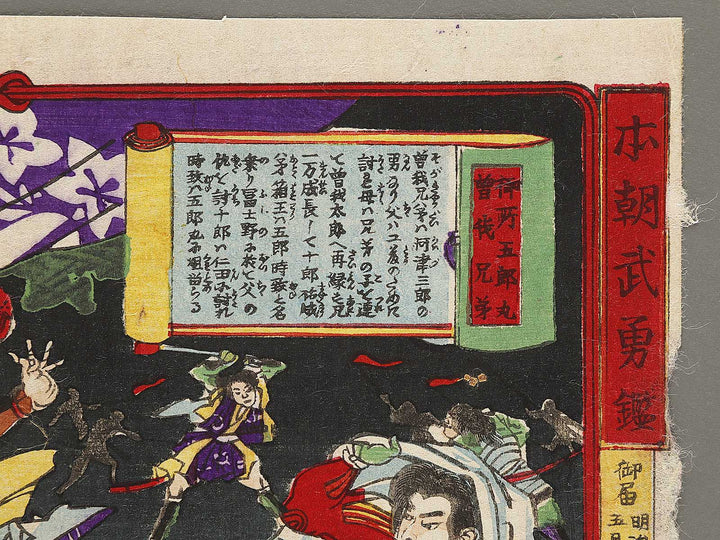 本朝武勇鑑
御所五郎丸
曽我兄弟
曽我兄弟ハ河津三郎の
男なり父ハ工藤のために
討れ母ハ兄弟の子を連
て曽我太郎へ再縁し兄
一万成長して十郎祐成
弟箱王ハ五郎時致と名
乗り冨士野に於て父の
仇を討十郎ハ仁田に討れ
時致ハ五郎丸に組留らる
御届
明治
五月